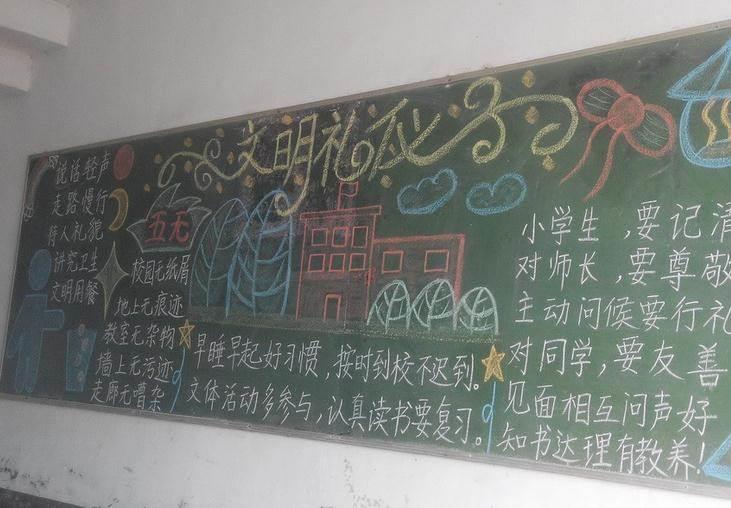 文明礼仪
说话轻声
走路慢行
待人礼貌
讲究卫生
文明用餐
五无
校园无纸屑
地上无痕迹
教室无杂物
墙上无污迹
走廊无嘈杂
早睡早起好习惯，按时到校不迟到。
文体活动多参与，认真读书要复习。
小学生，要记清
对师长，要尊敬
主动问候要行礼
对同学，要友善
见面相互问声好
知书达理有教养！